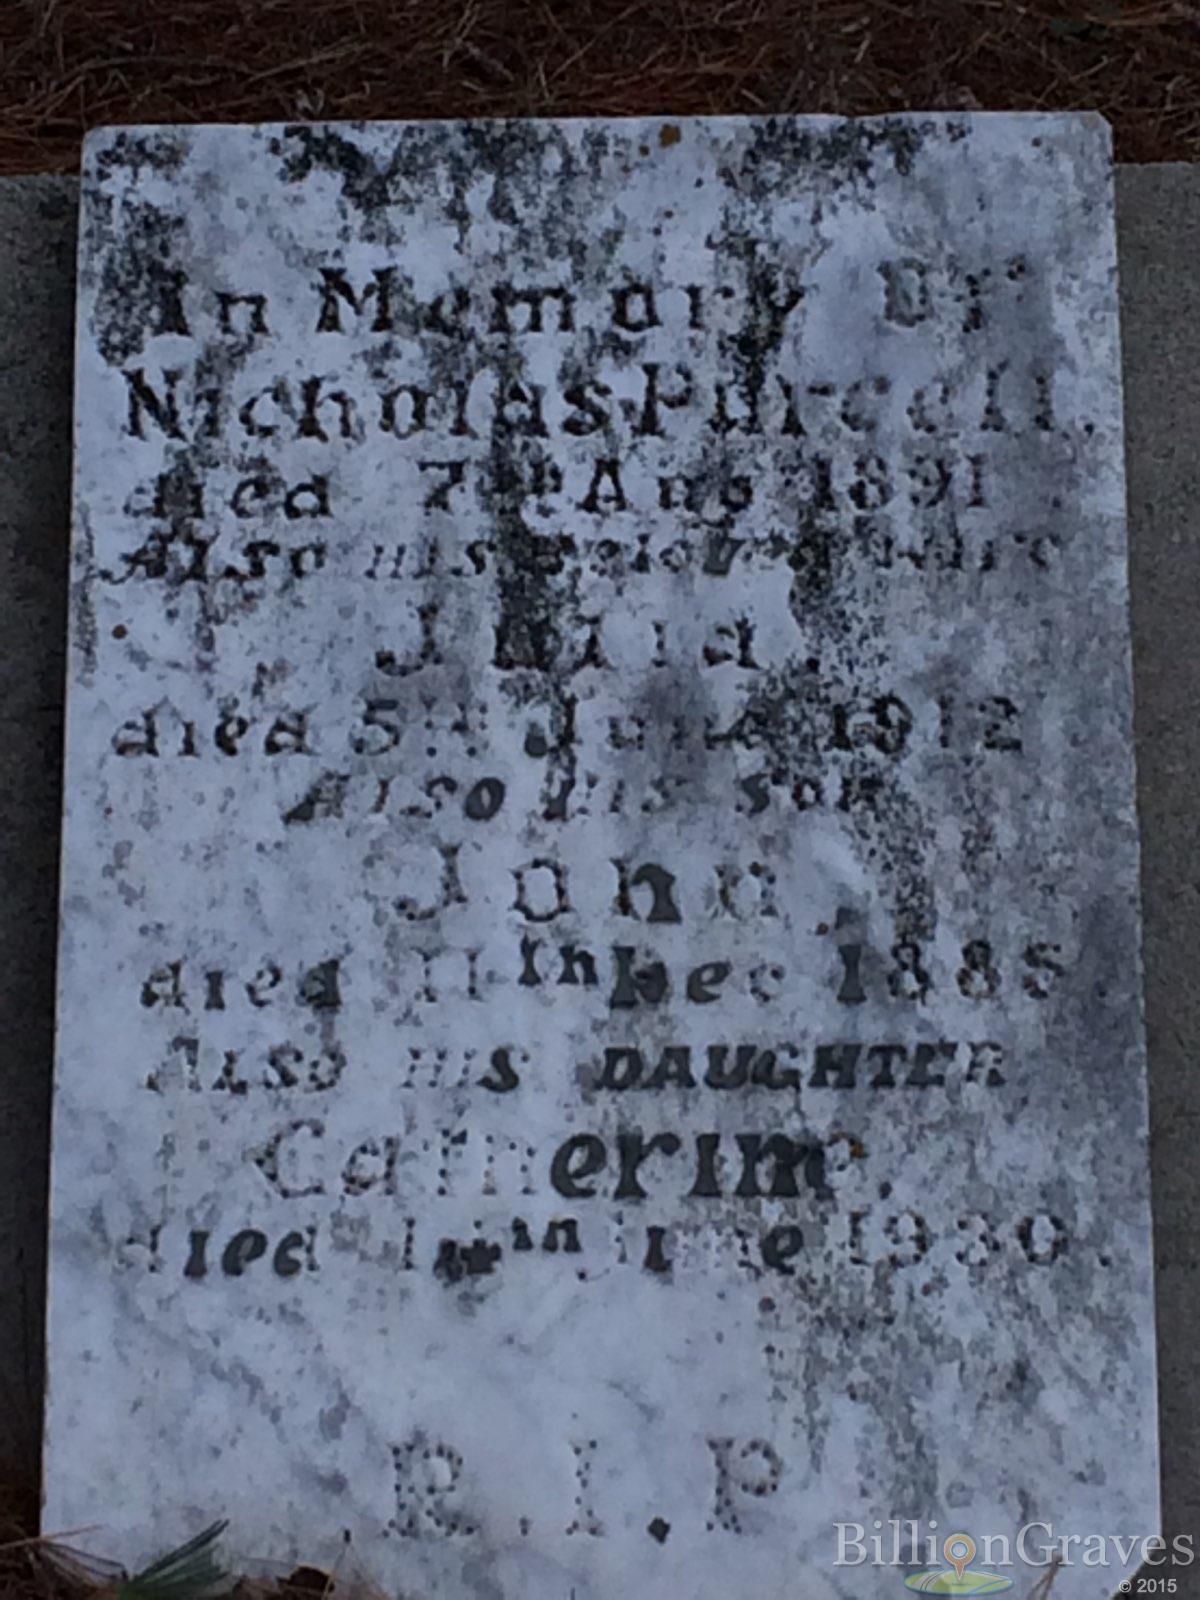 In Memory Of
Nicholas Purcell.
died 7th Aug 1891
ALSO HIS BELOVED WIFE
Julia.
died 5th June 1912
ALSO HIS SON
John.
died 11th Dec 1885
ALSO HIS DAUGHTER
Catherine.
died June 1930.
R.I.P
BillionGraves
© 2015